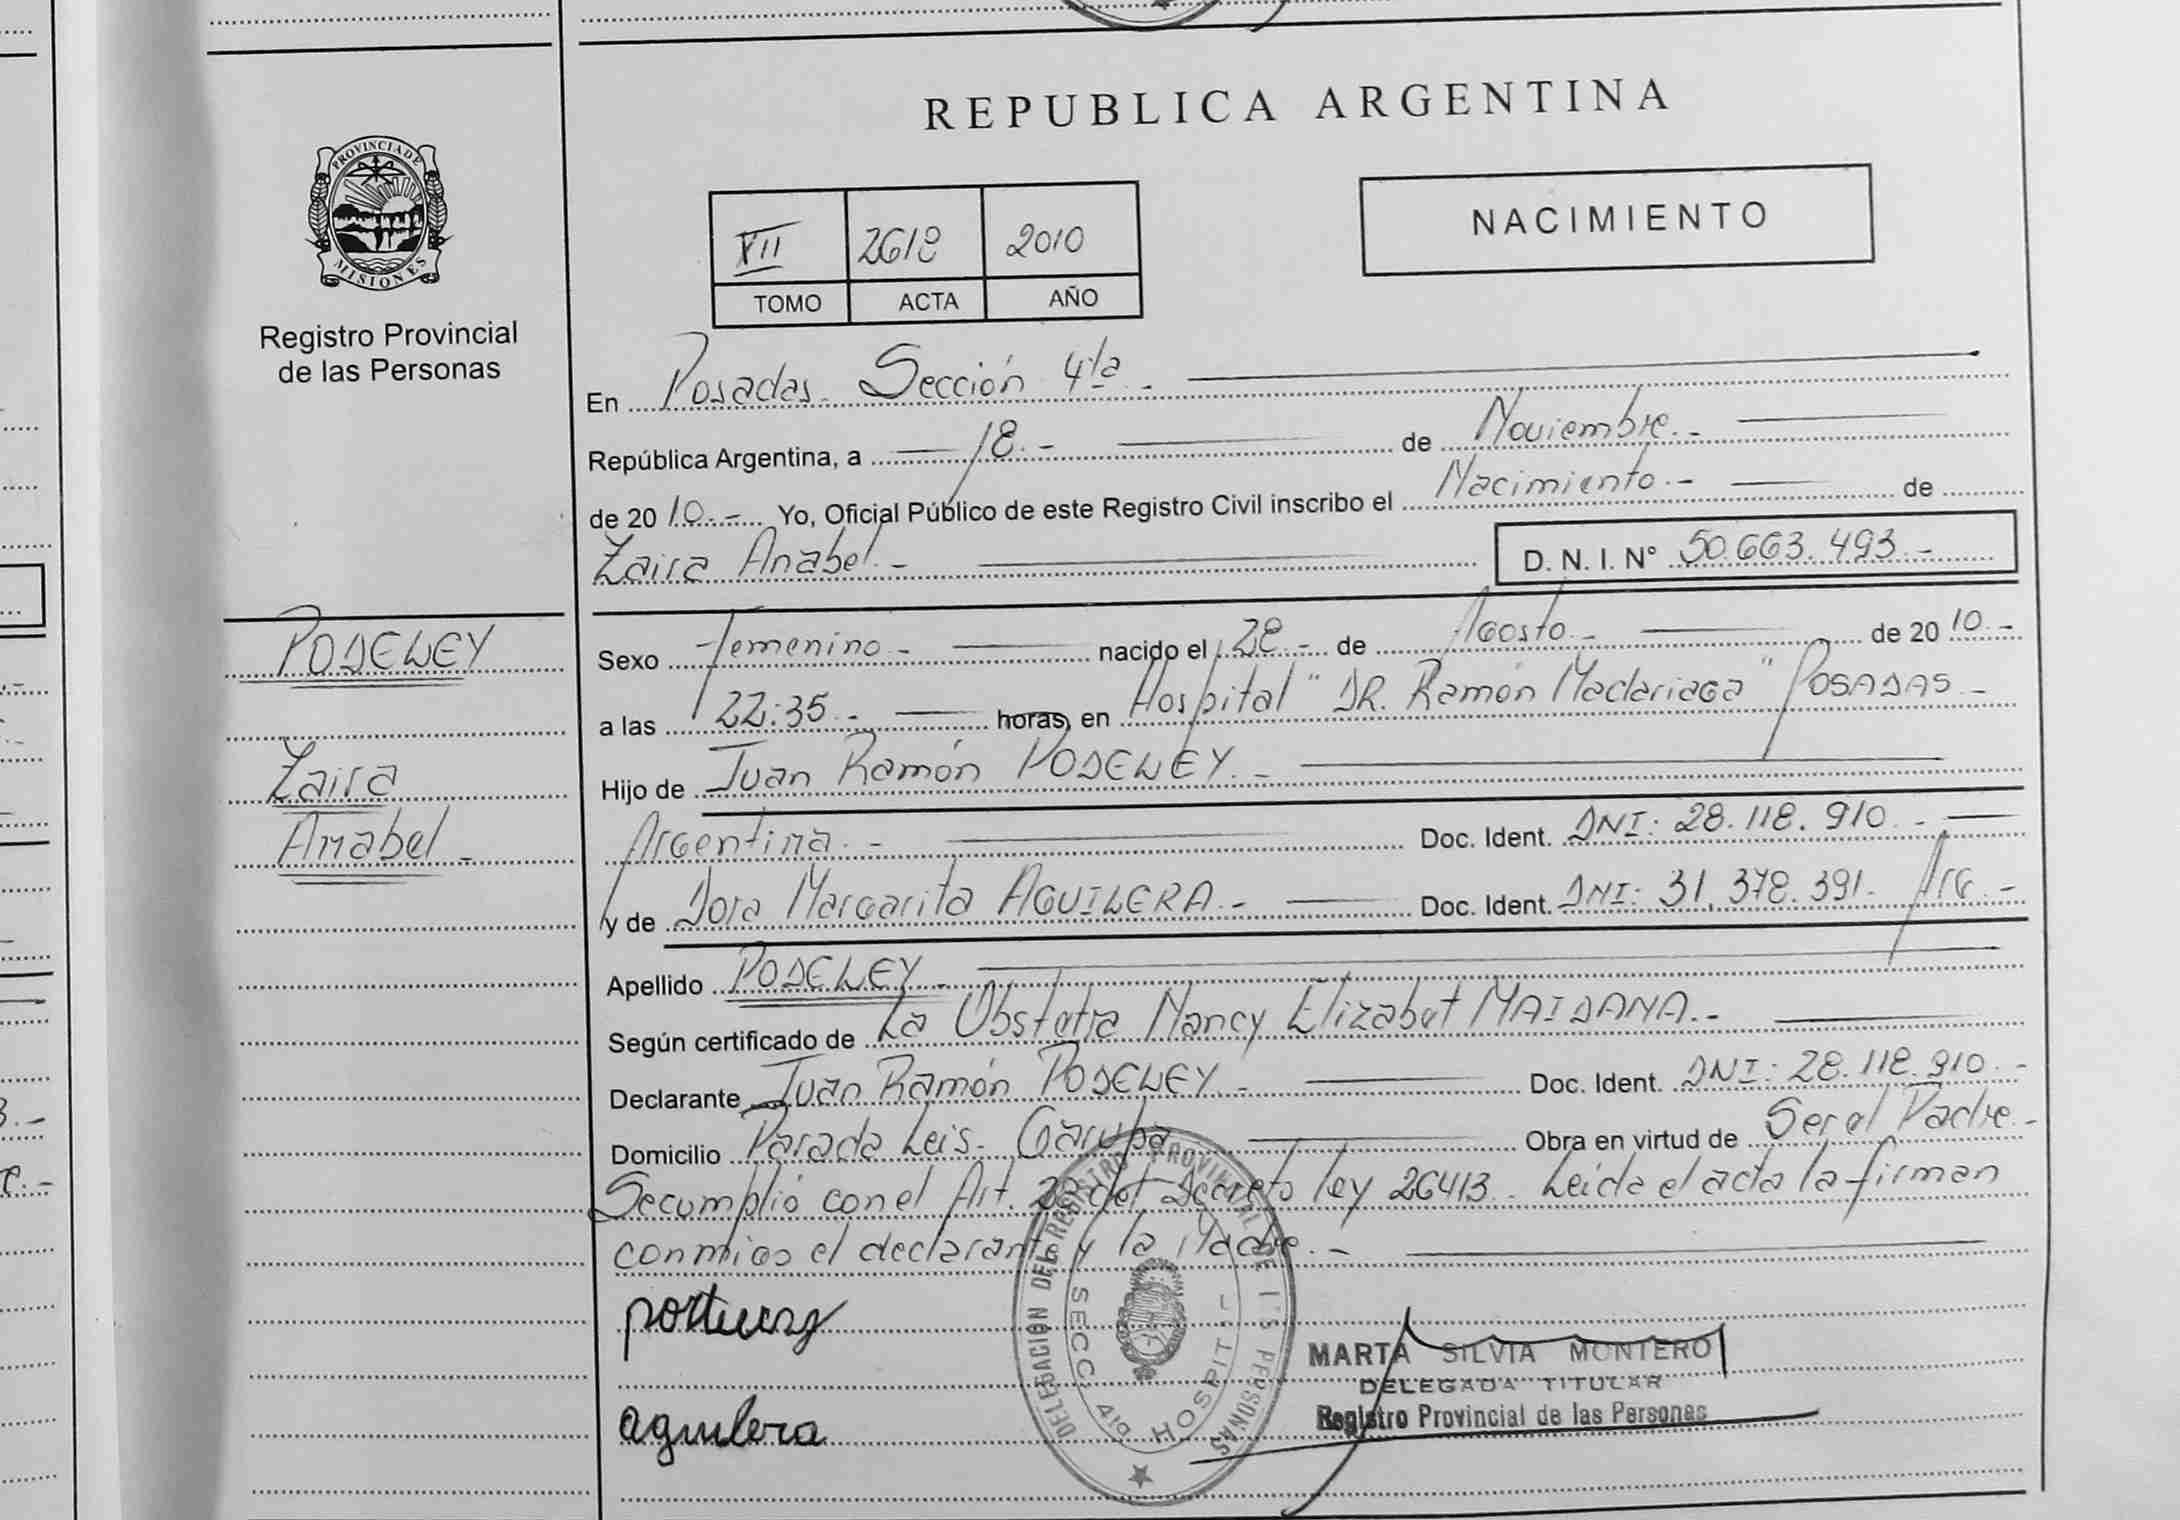 REPUBLICA ARGENTINA
PROVINCIA DE
MISIONES
Registro Provincial
de las Personas
VII 2618 2010
TOMO ACTA AÑO
NACIMIENTO
En Posadas. Sección 4ta.-
República Argentina, a 18.- de Noviembre.-
de 2010.- Yo, Oficial Público de este Registro Civil inscribo el Nacimiento.- de
Zaira Anabel.- D. N. I. N° 50.663.493.-
PODELEY
Zaira
Anabel.-
Sexo Femenino.- nacido el 28.- de Agosto.- de 2010.-
a las 22:35.- horas, en Hospital "DR. Ramón Madariaga" POSADAS.-
Hijo de Juan Ramón PODELEY.-
Argentina.- Doc. Ident. DNI: 28.118.910.-
y de Dora Margarita AGUILERA.- Doc. Ident. DNI: 31.378.391. Arg.-
Apellido PODELEY.-
Según certificado de La Obstetra Nancy Elizabet MAIDANA.-
Declarante Juan Ramón PODELEY.- Doc. Ident. DNI: 28.118.910.-
Domicilio Parada Leis- Garupá Obra en virtud de Ser el Padre.-
Se cumplió con el Art. 28 del Decreto ley 26413. Leída el acta la firman
conmigo el declarante y la Madre.-
aguilera
DELEGACIÓN DEL REGISTRO PROVINCIAL DE LAS PERSONAS
SECC. 4ta HOSPITAL
MARTA SILVIA MONTERO
DELEGADA TITULAR
Registro Provincial de las Personas